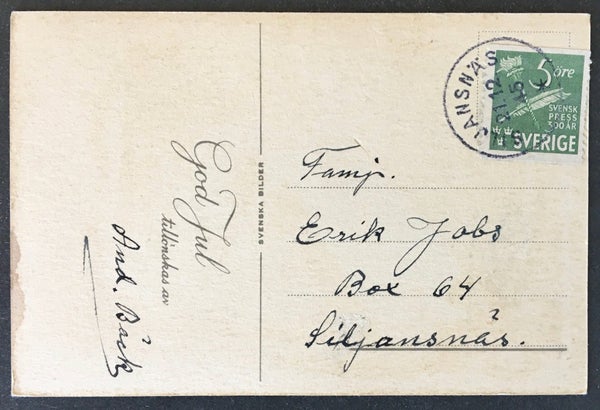 God Jul
tillönskas av
And. Bäck
SVENSKA BILDER
SILJANSNÄS
21.12
45
5 öre
SVENSK
PRESS
300 ÅR
SVERIGE
Famj.
Erik Jobs
Box 64
Siljansnäs.